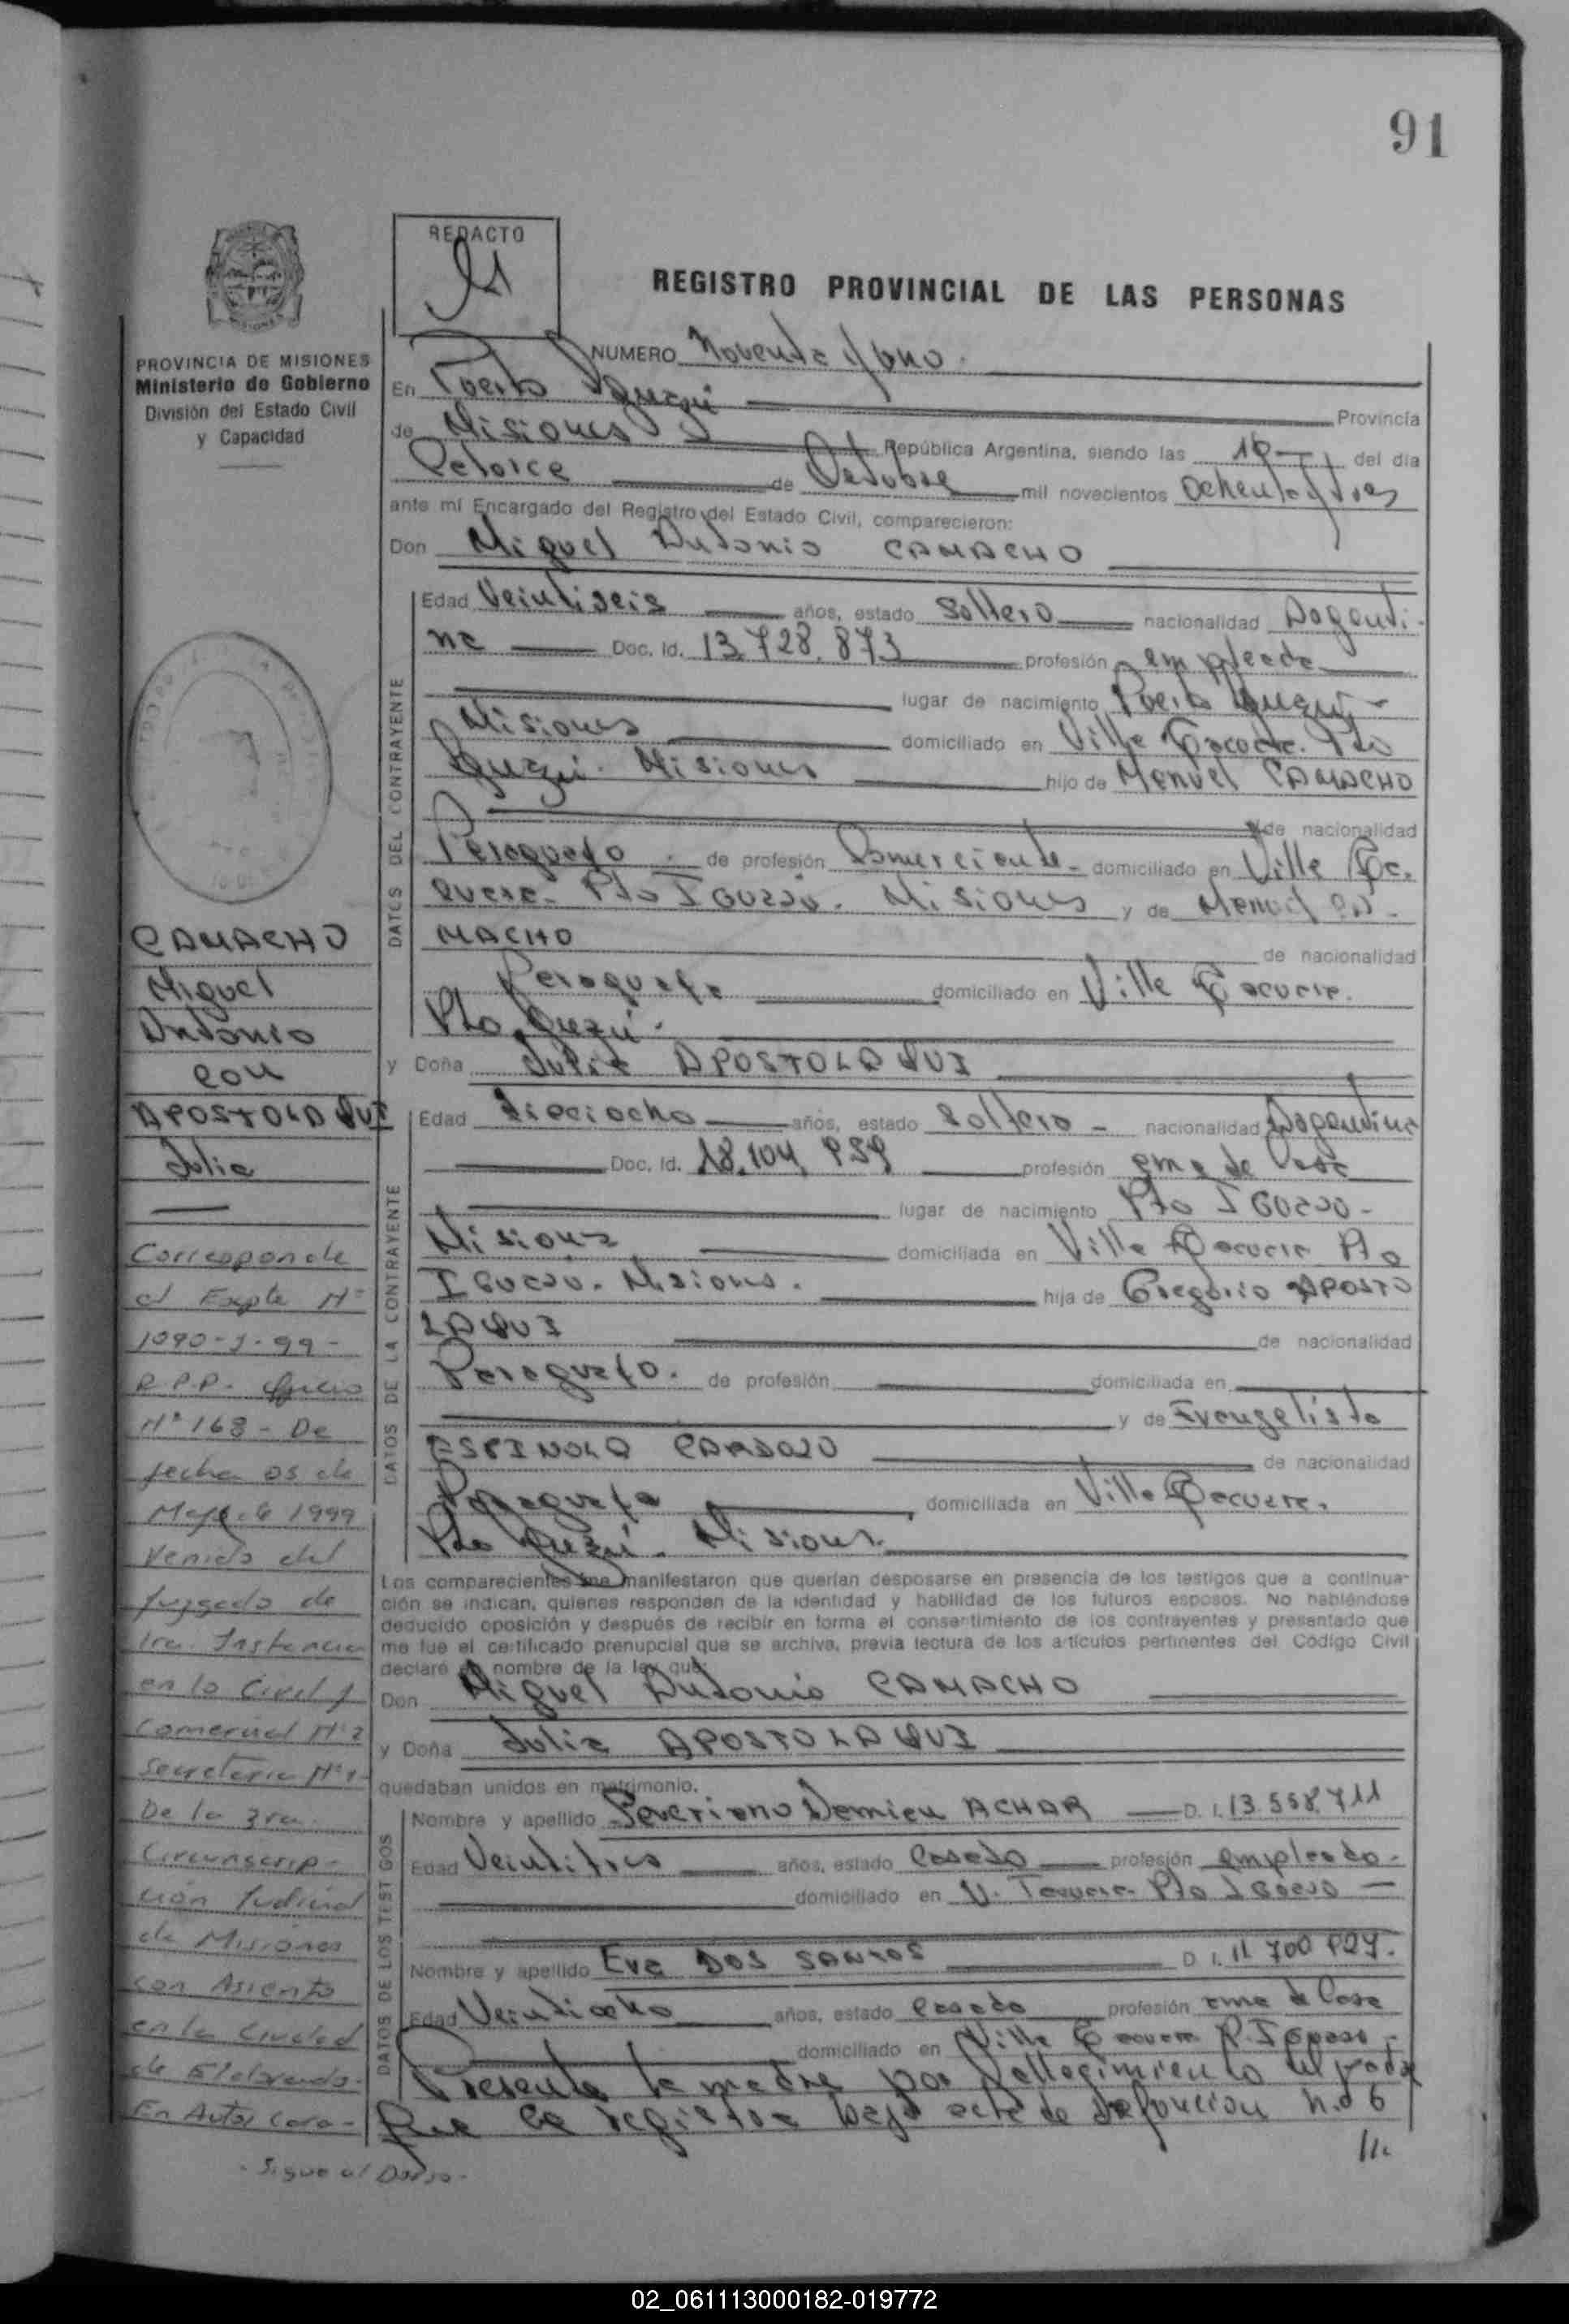 91
REDACTO
91
REGISTRO PROVINCIAL DE LAS PERSONAS
PROVINCIA DE MISIONES
Ministerio de Gobierno
División del Estado Civil
y Capacidad
NUMERO Noventa y uno
En Puerto Iguazú Provincia
de Misiones República Argentina, siendo las del día
Catorce de Octubre mil novecientos ochenta y tres
ante mí Encargado del Registro del Estado Civil, comparecieron:
Don Miguel Antonio CAMACHO
DATOS DEL CONTRAYENTE
Edad Veintiseis años, estado Soltero nacionalidad Argenti-
na Doc. Id. 13.728.873 profesión empleado
lugar de nacimiento Puerto Iguazú -
Misiones domiciliado en Villa Pto
Iguazú. Misiones hijo de Manuel CAMACHO
de nacionalidad
Paraguayo de profesión Comerciante - domiciliado en Villa
Pto IGUAZÚ. Misiones y de CA-
MACHO de nacionalidad
Paraguaya domiciliado en Villa
Pto Iguazú.
y Doña Julia APOSTOLAQUI
DATOS DE LA CONTRAYENTE
Edad Dieciocho años, estado Soltera - nacionalidad Argentina
Doc. Id. 18.104. profesión ama de Casa
lugar de nacimiento Pto IGUAZÚ -
Misiones domiciliada en Villa Pto
IGUAZÚ. Misiones. hija de Gregorio APOSTO
LAQUI de nacionalidad
Paraguayo. de profesión domiciliada en
y de Evangelista
ESPINOLA CARDOZO de nacionalidad
Paraguaya domiciliada en Villa
Pto Iguazú. Misiones.
Los comparecientes me manifestaron que querían desposarse en presencia de los testigos que a continua-
ción se indican, quienes responden de la identidad y habilidad de los futuros esposos. No habiéndose
deducido oposición y después de recibir en forma el consentimiento de los contrayentes y presentado que
me fue el certificado prenupcial que se archiva, previa lectura de los artículos pertinentes del Código Civil
declaré en nombre de la ley que:
Don Miguel Antonio CAMACHO
y Doña Julia APOSTOLAQUI
quedaban unidos en matrimonio.
DATOS DE LOS TESTIGOS
Nombre y apellido Severiano ACHAR D. I. 13.558.711
Edad Veintitres años, estado Casado profesión empleado -
domiciliado en V. Pto IGUAZÚ -
Nombre y apellido Eva DOS SANTOS D. I. 11.700
Edad Veintiocho años, estado Casada profesión ama de Casa
domiciliado en Villa P. IGUAZÚ -
Presente la madre por del padre
que se registra bajo acta de defunción n.o 6
///.
CAMACHO
Miguel
Antonio
con
APOSTOLAQUI
Julia
Corresponde
al Expte Nº
1090-J-99-
R.P.P. Oficio
Nº 168 - De
fecha 05 de
Mayo de 1999
Venido del
Juzgado de
1ra. Instancia
en lo Civil y
Comercial Nº 2
Secretaria Nº 1-
De la 3ra.
Circunscrip-
ción Judicial
de Misiones
con Asiento
en la Ciudad
de Eldorado-
En Autos Cara-
- Sigue al Dorso -
02_061113000182-019772